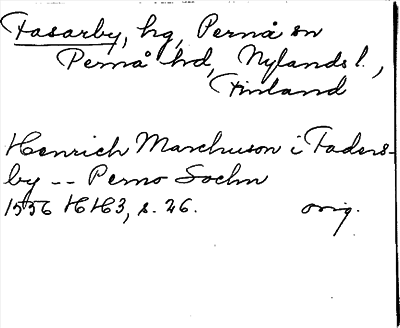 Fasarby, hg, Pernå sn
Pernå hd, Nylands l.,
Finland
Henrich Marchuson i Faders-
by -- Perno Sochn
1556 HH3, s. 26.   orig.